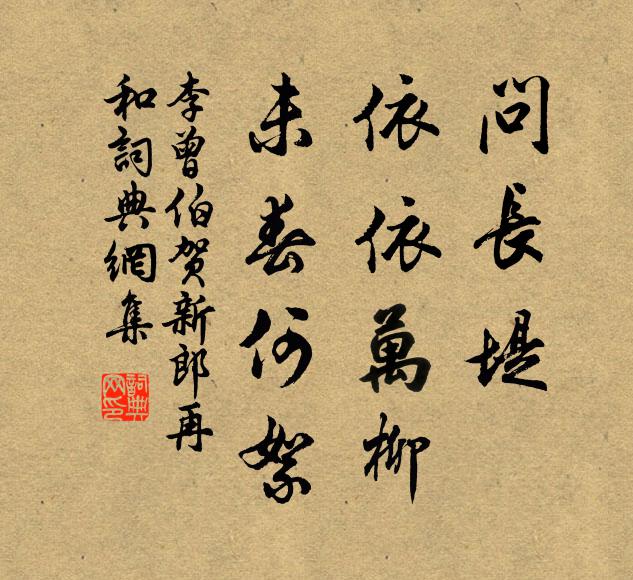 問長堤
依依萬柳
未春何絮
李曾伯賀新郎再
和詞典網集
詞典網印